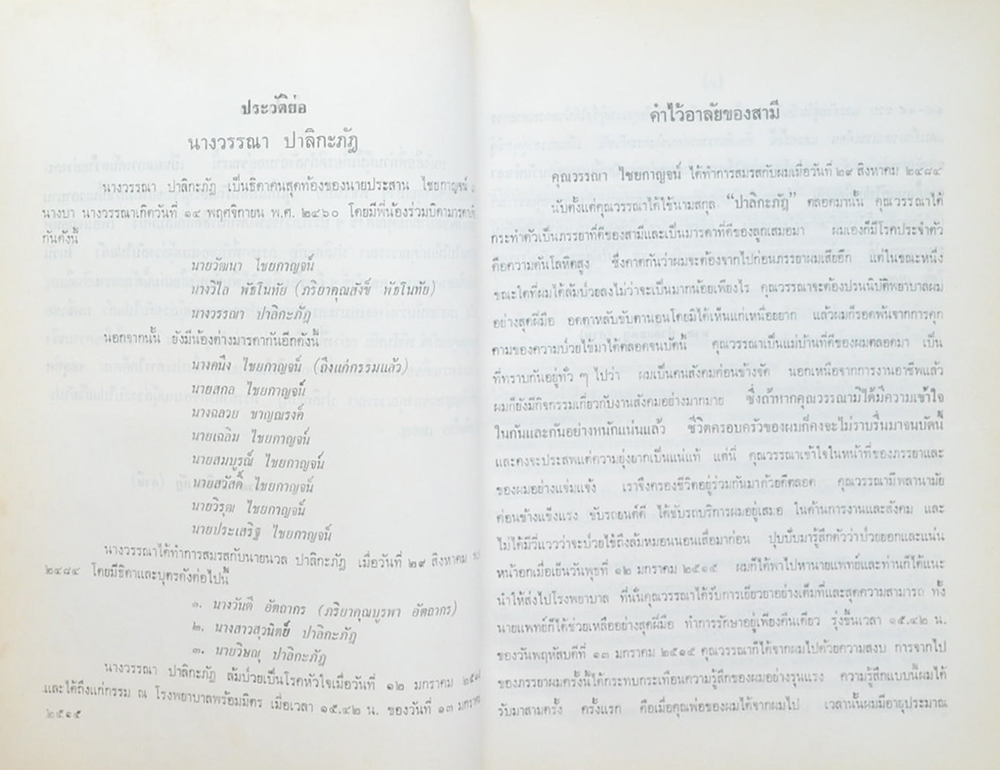 ประวัติย่อ
นางวรรณา ปาลิกะภัฎ
นางวรรณา ปาลิกะภัฎ เป็นธิดาคนสุดท้องของนายประสาน ไชยกาญจน์
นางบา นางวรรณาเกิดวันที่ ๑๔ พฤศจิกายน พ.ศ. ๒๔๖๐ โดยมีพี่น้องร่วมบิดามารดาเดียว
กันดังนี้
นายวัฒนา ไชยกาญจน์
นางวิไล พัธโนทัย (ภริยาคุณสังข์ พัธโนทัย)
นางวรรณา ปาลิกะภัฎ
นอกจากนั้น ยังมีน้องต่างมารดากันอีกดังนี้
นางคนึง ไชยกาญจน์ (ถึงแก่กรรมแล้ว)
นายสกล ไชยกาญจน์
นางฉลวย ชาญณรงค์
นายเฉลิม ไชยกาญจน์
นายสมบูรณ์ ไชยกาญจน์
นายสวัสดิ์ ไชยกาญจน์
นายวิรุฒ ไชยกาญจน์
นายประเสริฐ ไชยกาญจน์
นางวรรณาได้ทำการสมรสกับนายนวล ปาลิกะภัฎ เมื่อวันที่ ๒๙ สิงหาคม
๒๔๘๔ โดยมีธิดาและบุตรดังต่อไปนี้
๑. นางวันดี อัตถากร (ภริยาคุณบูรพา อัตถากร)
๒. นางสาวสุวนิตย์ ปาลิกะภัฎ
๓. นายวิษณุ ปาลิกะภัฎ
นางวรรณา ปาลิกะภัฎ ล้มป่วยเป็นโรคหัวใจเมื่อวันที่ ๑๒ มกราคม
และได้ถึงแก่กรรม ณ โรงพยาบาลพร้อมมิตร เมื่อเวลา ๑๕.๔๒ น. ของวันที่ ๑๓ มกราคม
๒๕๑๕
คำไว้อาลัยของสามี
คุณวรรณา ไชยกาญจน์ ได้ทำการสมรสกับผมเมื่อวันที่ ๒๙ สิงหาคม ๒๔๘๔
นับตั้งแต่คุณวรรณาได้ใช้นามสกุล “ปาลิกะภัฎ” ตลอดมานั้น คุณวรรณาได้
กระทำตัวเป็นภรรยาที่ดีของสามีและเป็นมารดาที่ดีของลูกเสมอมา ผมเองก็มีโรคประจำตัว
คือความดันโลหิตสูง ซึ่งคาดกันว่าผมจะต้องจากไปก่อนภรรยาผมเสียอีก แต่ในขณะหนึ่ง
ขณะใดที่ผมได้ล้มป่วยลงไม่ว่าจะเป็นมากน้อยเพียงไร คุณวรรณาจะต้องปรนนิบัติพยาบาลผม
อย่างสุดฝีมือ อดตาหลับขับตานอนโดยมิได้เห็นแก่เหนื่อยยาก แล้วผมก็รอดพ้นจากการคุก
คามของความป่วยไข้มาได้ตลอดจนบัดนี้ คุณวรรณาเป็นแม่บ้านที่ดีของผมตลอดมา เป็น
ที่ทราบกันอยู่ทั่ว ๆ ไปว่า ผมเป็นคนสังคมค่อนข้างจัด นอกเหนือจากการงานอาชีพแล้ว
ผมก็ยังมีกิจกรรมเกี่ยวกับงานสังคมอย่างมากมาย ซึ่งถ้าหากคุณวรรณามิได้มีความเข้าใจ
ในกันและกันอย่างหนักแน่นแล้ว ชีวิตครอบครัวของผมก็คงจะไม่ราบรื่นมาจนบัดนี้
และคงจะประสพแต่ความยุ่งยากเป็นแน่แท้ แต่นี่ คุณวรรณาเข้าใจในหน้าที่ของภรรยาและ
ของผมอย่างแจ่มแจ้ง เราจึงครองชีวิตอยู่ร่วมกันมาด้วยดีตลอด คุณวรรณามีพลานามัย
ค่อนข้างแข็งแรง ขับรถยนต์ดี ได้ขับรถบริการผมอยู่เสมอ ในด้านการงานและสังคม และ
ไม่ได้มีวี่แววว่าจะป่วยไข้ถึงล้มหมอนนอนเสื่อมาก่อน ปุบปับมารู้สึกตัวว่าป่วยออกและแน่น
หน้าอกเมื่อเย็นวันพุธที่ ๑๒ มกราคม ๒๕๑๕ ผมก็ได้พาไปหานายแพทย์และท่านก็ได้แนะ
นำให้ส่งไปโรงพยาบาล ที่นั่นคุณวรรณาได้รับการเยียวยาอย่างเต็มที่และสุดความสามารถ ทั้ง
นายแพทย์ก็ได้ช่วยเหลืออย่างสุดฝีมือ ทำการรักษาอยู่เพียงคืนเดียว รุ่งขึ้นเวลา ๑๕.๔๒ น.
ของวันพฤหัสบดีที่ ๑๓ มกราคม ๒๕๑๕ คุณวรรณาก็ได้จากผมไปด้วยความสงบ การจากไป
ของภรรยาผมครั้งนี้ได้กระทบกระเทือนความรู้สึกของผมอย่างรุนแรง ความรู้สึกแบบนี้ผมได้
รับมาสามครั้ง ครั้งแรก คือเมื่อคุณพ่อของผมได้จากผมไป เวลานั้นผมมีอายุประมาณ